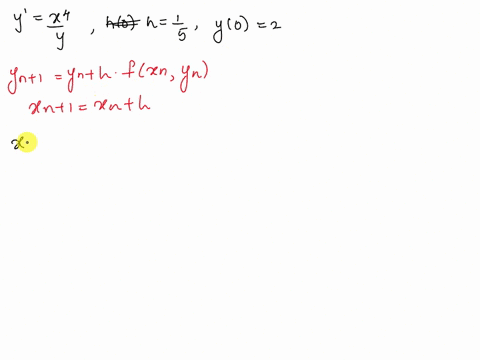 y' = x⁴/y , h(0) h = 1/5 , y(0) = 2
yn+1 = yn + h · f(xn, yn)
xn+1 = xn + h
x